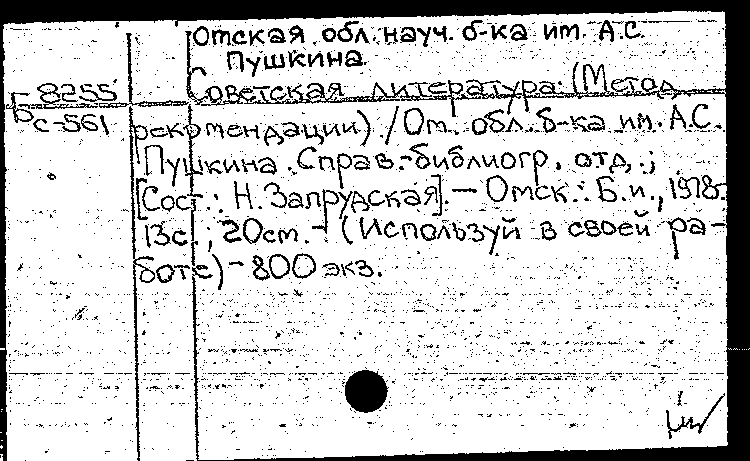 Омская обл. науч. б-ка им. А.С.
Пушкина
Б 8255
с-561
Советская литература: (Метод.
рекомендации) / Ом. обл. б-ка им. А.С.
Пушкина. Справ.-библиогр. отд.;
[Сост.: Н. Запрудская]. — Омск.: Б.и., 1978.
13с.; 20см. - (Используй в своей ра-
боте) - 800 экз.